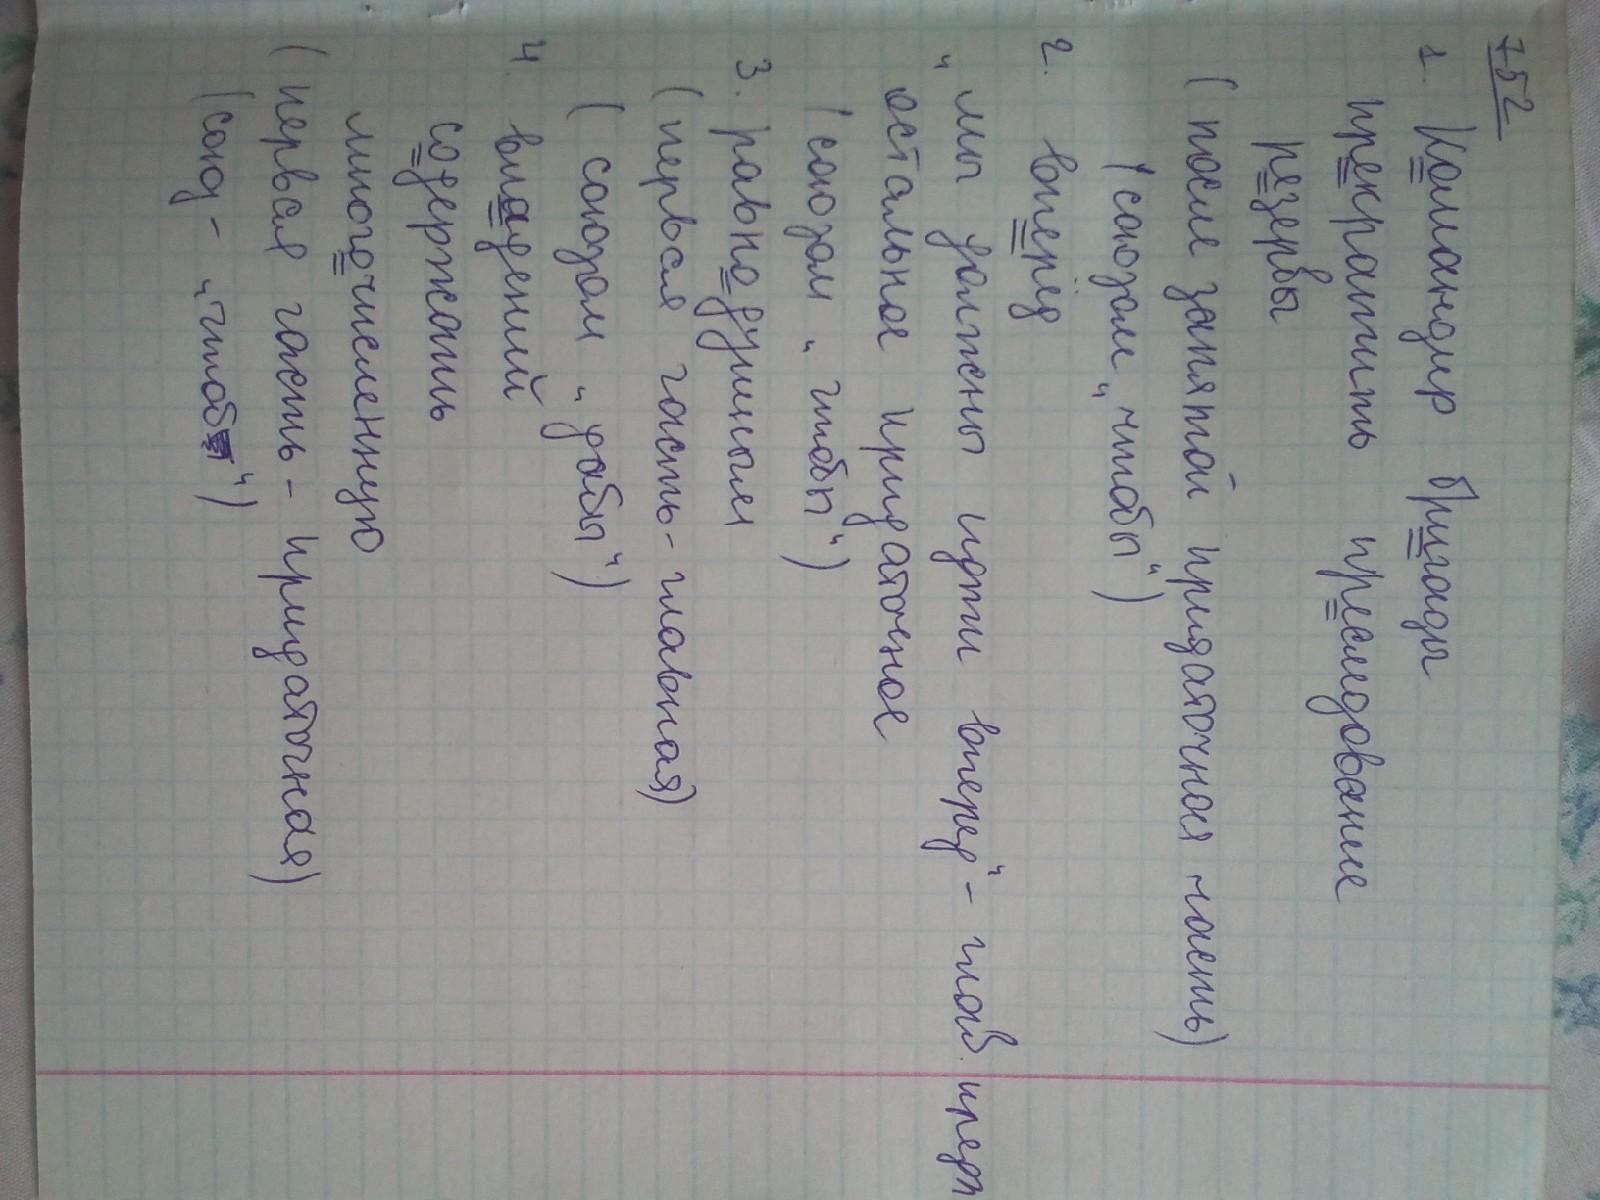 752
1. Командир бригады
прекратить преследование
резервы
(после запятой придаточная часть)
(союзом „чтобы“)
2. вперёд
„мы должны идти вперед“ - глав. предл
остальное придаточное
(союзом „чтобы“)
3. равнодушным
(первая часть - главная)
(союзом „дабы“)
4. владений
содержать
многочисленную
(первая часть - придаточная)
(союз - „чтоб“)